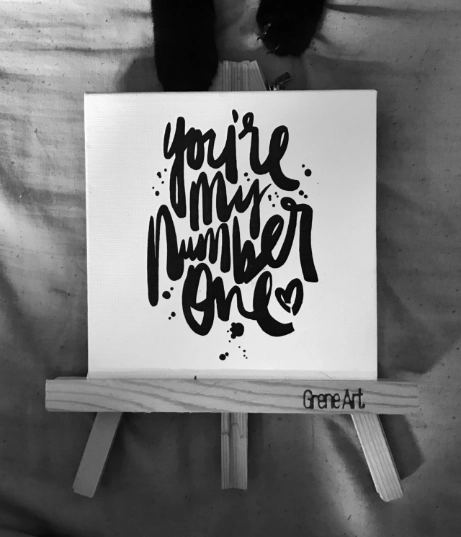 you're
my
number
one
Grene Art